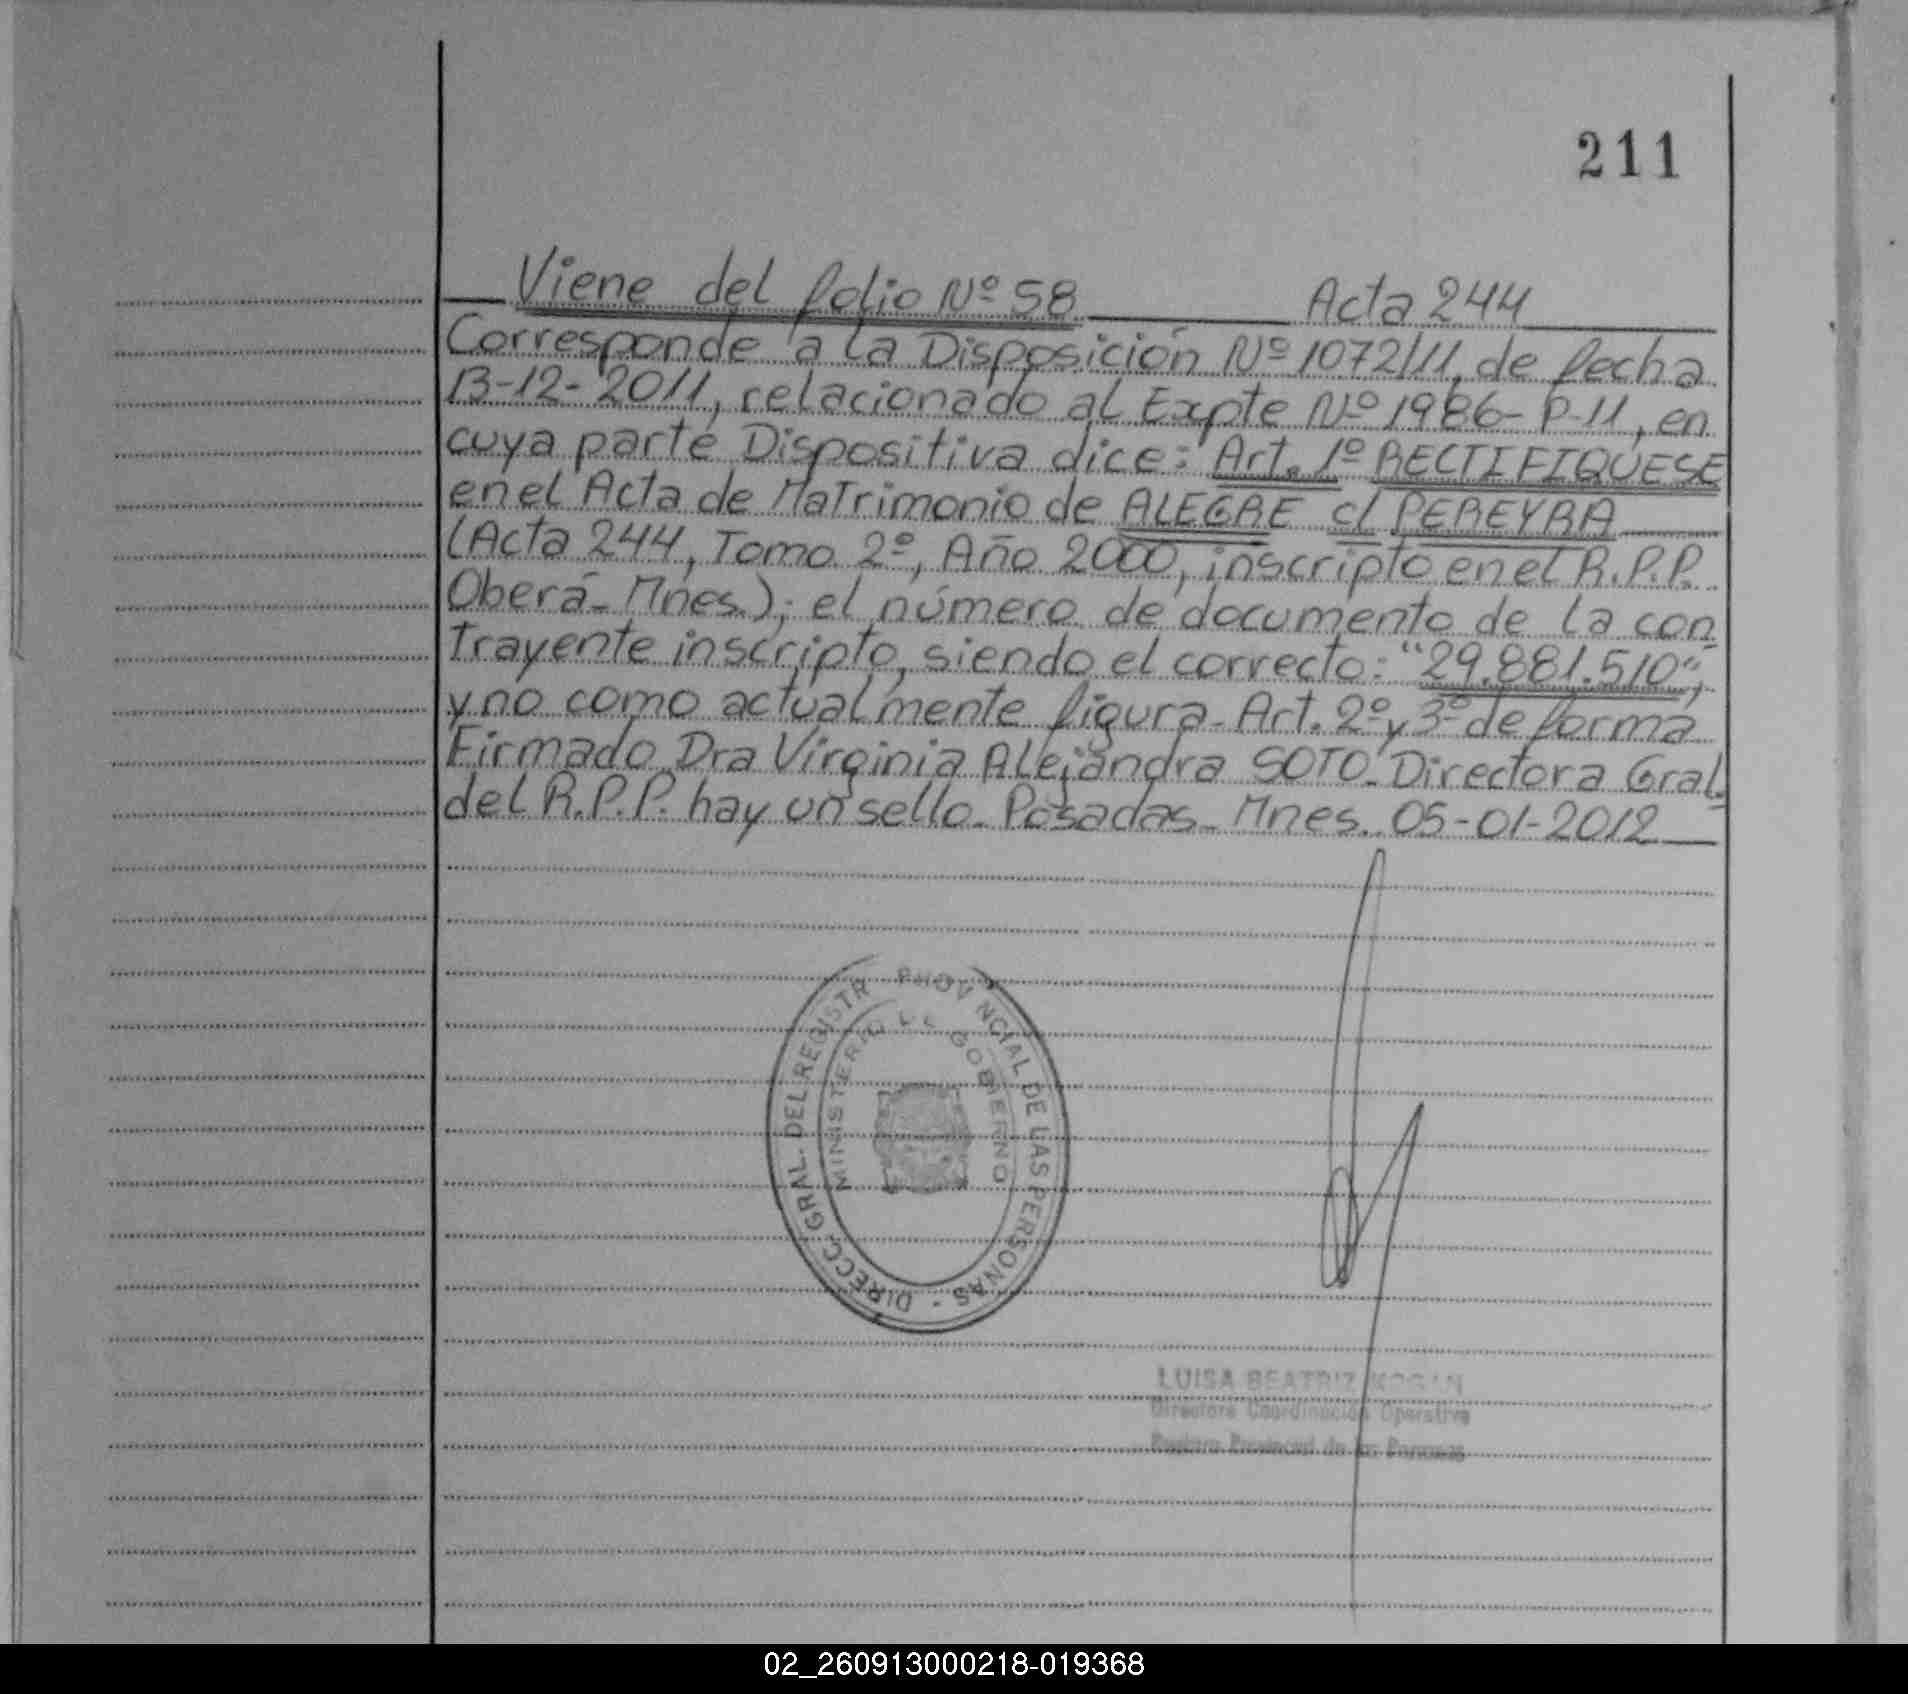 211
Viene del folio Nº 58 Acta 244
Corresponde a la Disposición Nº 1072/11, de fecha
13-12-2011, relacionado al Expte Nº 1986-P-11, en
cuya parte Dispositiva dice: Art. 1º RECTIFIQUESE
en el Acta de Matrimonio de ALEGRE c/ PEREYRA
(Acta 244, Tomo 2º, Año 2000, inscripto en el R.P.P.
Oberá-Mnes.); el número de documento de la con-
trayente inscripto, siendo el correcto: "29.881.510",
y no como actualmente figura. Art. 2º y 3º de forma
Firmado Dra Virginia Alejandra SOTO-Directora Gral.
del R.P.P. hay un sello. Posadas-Mnes. 05-01-2012
DIRECC. GRAL. DEL REGISTR PROV NCIAL DE LAS PERSONAS -
MINISTERIO DE GOBIERNO
LUISA BEATRIZ
Directora Coordinación Operativa
Registro Provincial de las Personas
02_260913000218-019368